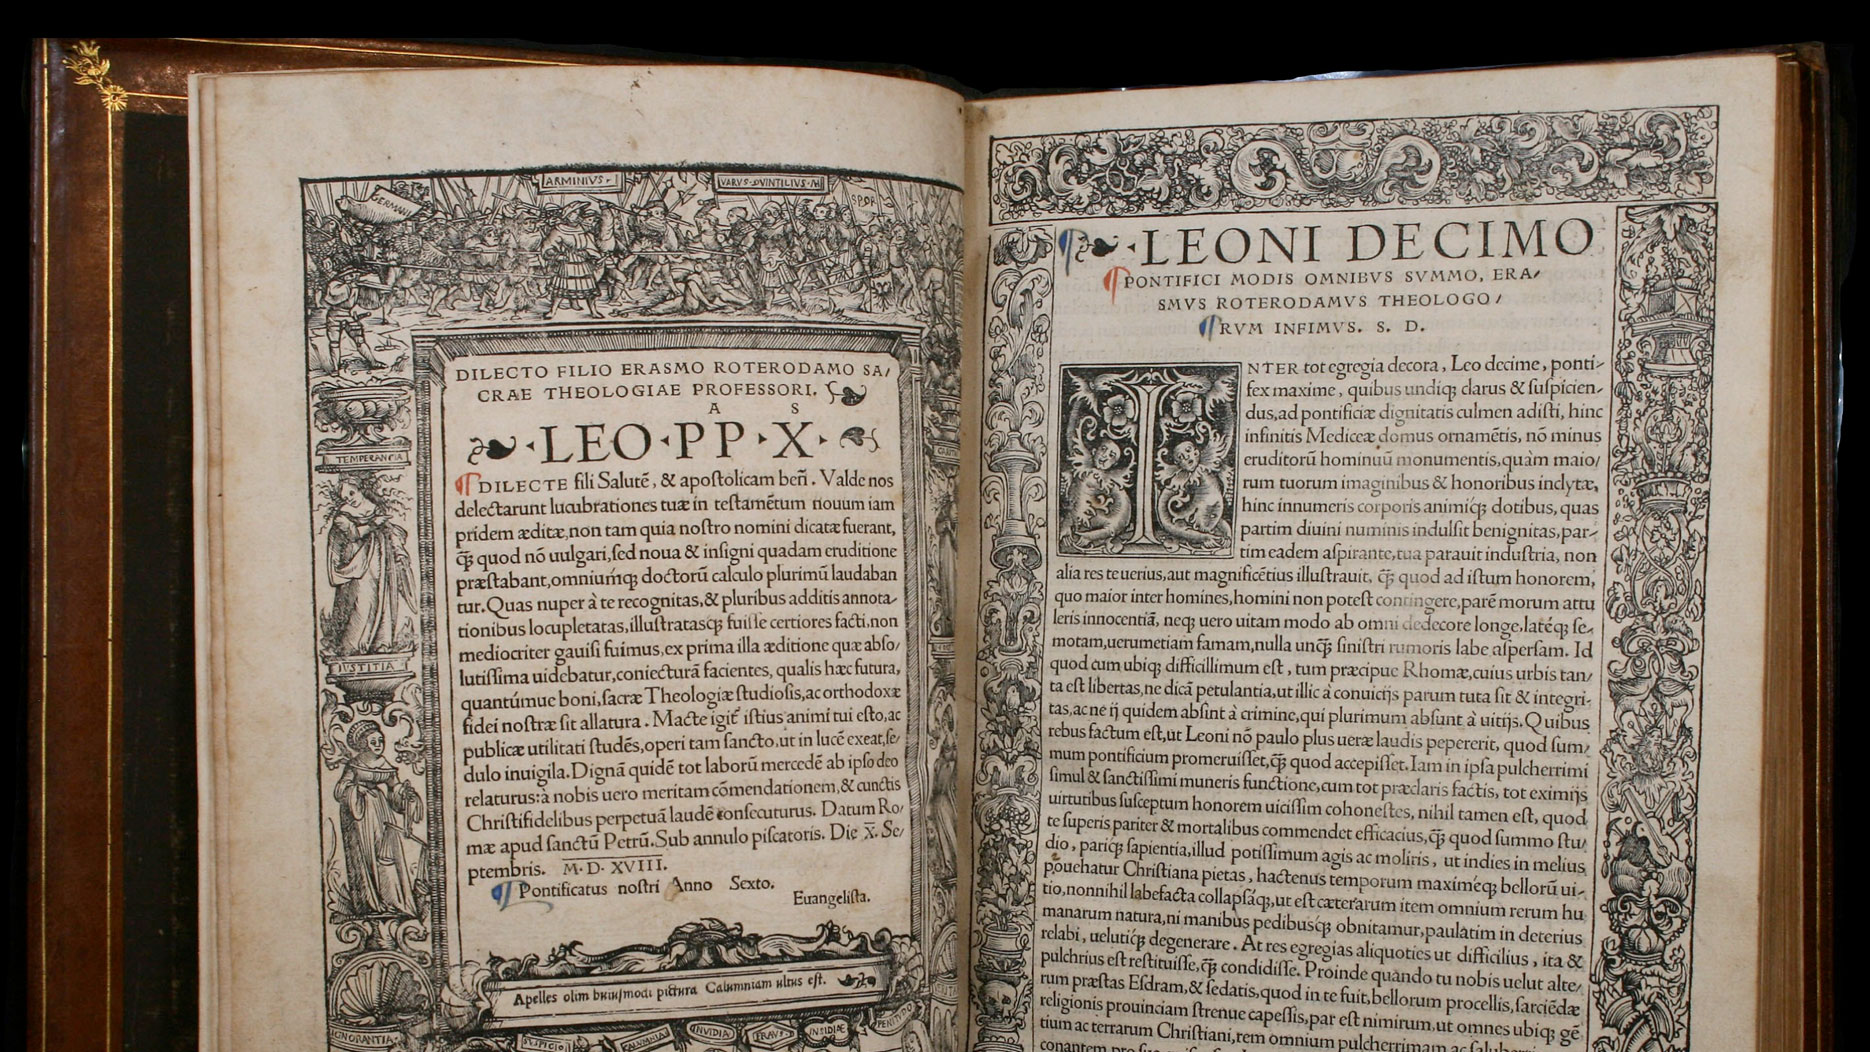 ARMINIVS
VARVS QVINTILIVS
GERMANI
SPQR
TEMPERANCIA
IVSTITIA
DILECTO FILIO ERASMO ROTERODAMO SA/
CRAE THEOLOGIAE PROFESSORI.
A S
·LEO·PP·X·
¶DILECTE fili Salutē, & apostolicam beñ. Valde nos
delectarunt lucubrationes tuæ in testamētum nouum iam
pridem æditæ, non tam quia nostro nomini dicatæ fuerant,
q̄ꝫ quod nō uulgari, sed noua & insigni quadam eruditione
præstabant, omniumq́ꝫ doctorū calculo plurimū laudaban
tur. Quas nuper à te recognitas, & pluribus additis annota-
tionibus locupletatas, illustratasqꝫ fuisse certiores facti, non
mediocriter gauisi fuimus, ex prima illa æditione quæ abso/
lutissima uidebatur, coniecturā facientes, qualis hæc futura,
quantúmue boni, sacræ Theologiæ studiosis, ac orthodoxæ
fidei nostræ sit allatura. Macte igit̃ istius animi tui esto, ac
publicæ utilitati studēs, operi tam sancto, ut in lucē exeat, se/
dulo inuigila. Dignā quidē tot laborū mercedē ab ipso deo
relaturus: à nobis uero meritam cōmendationem, & cunctis
Christifidelibus perpetuā laudē consecuturus. Datum Ro/
mæ apud sanctū Petrū. Sub annulo piscatoris. Die X. Se/
ptembris. M·D·XVIII.
¶ Pontificatus nostri Anno Sexto.
Euangelista.
Apelles olim huiusmodi pictura Calumniam ultus est.
IGNORANTIA
SVSPICIO
CALVMNIA
INVIDIA
FRAVS
INSIDIAE
PENITVDO
¶ ·LEONI DECIMO
¶PONTIFICI MODIS OMNIBVS SVMMO, ERA/
SMVS ROTERODAMVS THEOLOGO/
¶RVM INFIMVS. S. D.
INTER tot egregia decora, Leo decime, ponti-
fex maxime, quibus undiqꝫ clarus & suspicien-
dus, ad pontificiæ dignitatis culmen adisti, hinc
infinitis Mediceæ domus ornamētis, nō minus
eruditorū hominuū monumentis, quàm maio/
rum tuorum imaginibus & honoribus inclytæ,
hinc innumeris corporis animiq́ꝫ dotibus, quas
partim diuini numinis indulsit benignitas, par-
tim eadem aspirante, tua parauit industria, non
alia res te uerius, aut magnificētius illustrauit, q̄ꝫ quod ad istum honorem,
quo maior inter homines, homini non potest contingere, parē morum attu
leris innocentiā, neqꝫ uero uitam modo ab omni dedecore longe, latéqꝫ se-
motam, uerumetiam famam, nulla unq̄ꝫ sinistri rumoris labe aspersam. Id
quod cum ubiqꝫ difficillimum est, tum præcipue Rhomæ, cuius urbis tan/
ta est libertas, ne dicā petulantia, ut illic à conuicijs parum tuta sit & integri-
tas, ac ne ij quidem absint à crimine, qui plurimum absunt à uitijs. Quibus
rebus factum est, ut Leoni nō paulo plus ueræ laudis pepererit, quod sum/
mum pontificium promeruisset, q̄ꝫ quod accepisset. Iam in ipsa pulcherrimi
simul & sanctissimi muneris functione, cum tot præclaris factis, tot eximijs
uirtutibus susceptum honorem uicissim cohonestes, nihil tamen est, quod
te superis pariter & mortalibus commendet efficacius, q̄ꝫ quod summo stu/
dio, pariqꝫ sapientia, illud potissimum agis ac moliris, ut indies in melius
ꝓuehatur Christiana pietas, hactenus temporum maximéqꝫ bellorū ui-
tio, nonnihil labefacta collapsáqꝫ, ut est cæterarum item omnium rerum hu
manarum natura, ni manibus pedibusq́ꝫ obnitamur, paulatim in deterius
relabi, uelutiq́ꝫ degenerare. At res egregias aliquoties ut difficilius, ita &
pulchrius est restituisse, q̄ꝫ condidisse. Proinde quando tu nobis uelut alte/
rum præstas Esdram, & sedatis, quod in te fuit, bellorum procellis, sarciēdæ
religionis prouinciam strenue capessis, par est nimirum, ut omnes ubiqꝫ gē
tium ac terrarum Christiani, rem omnium pulcherrimam ac saluberri